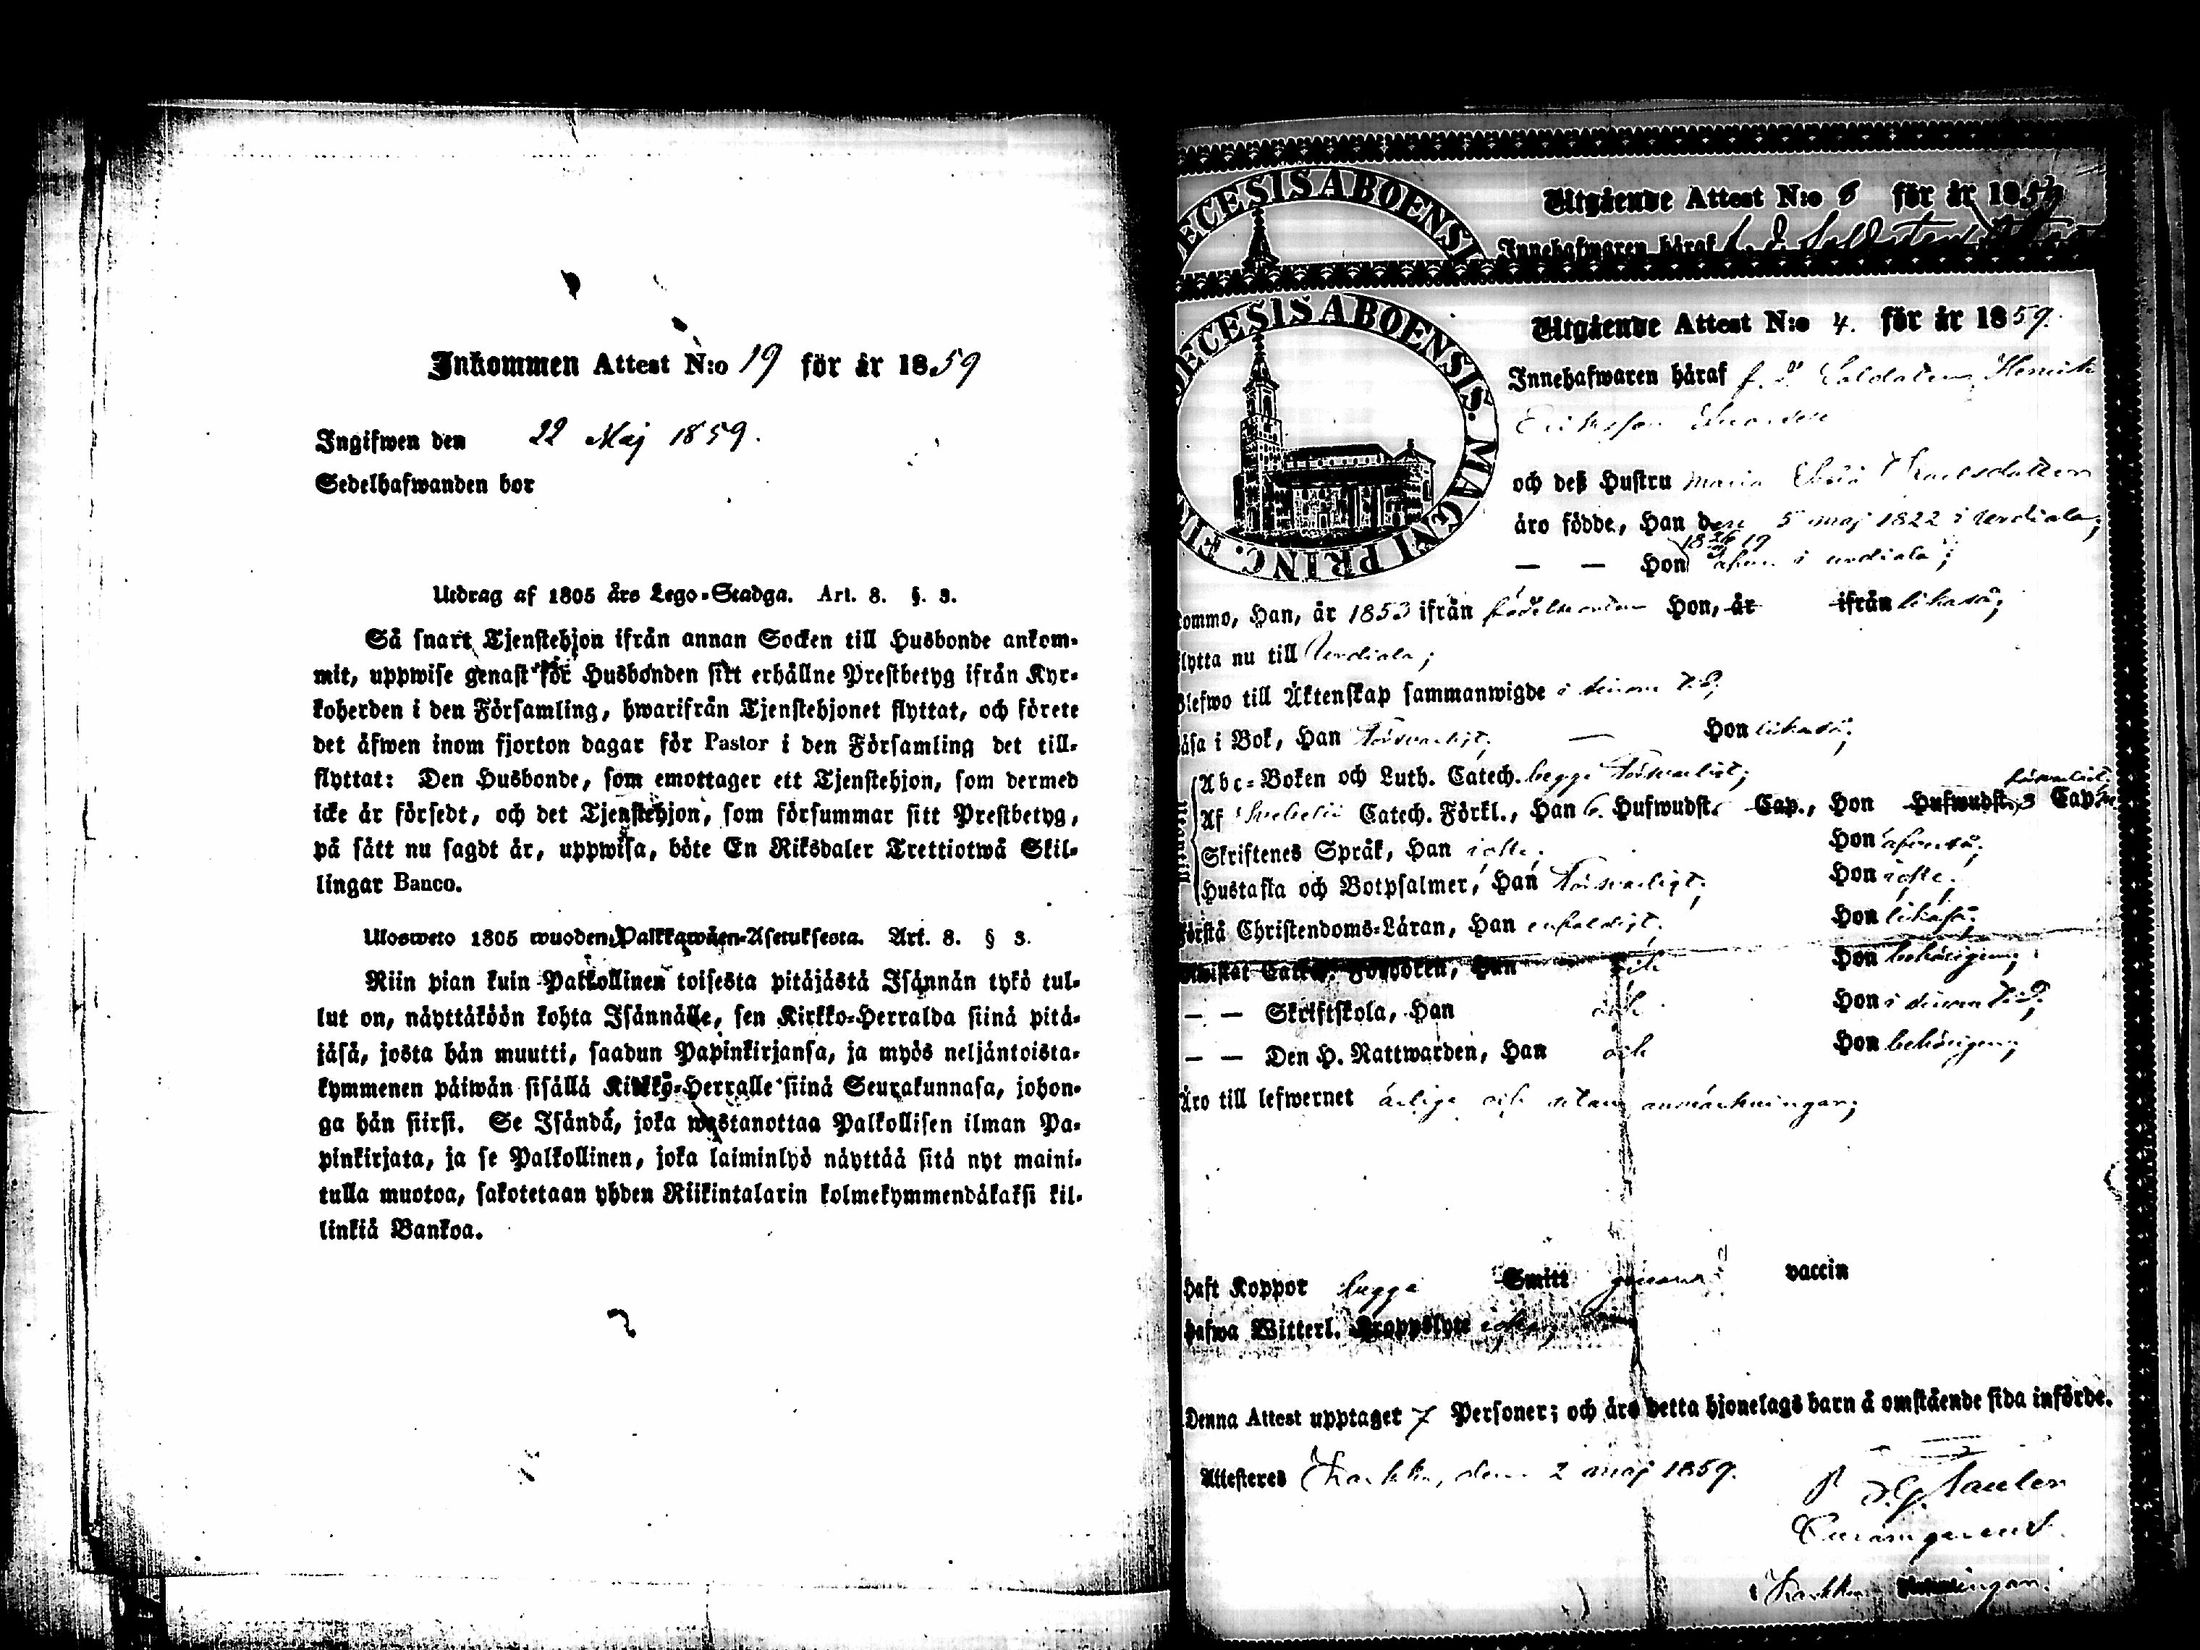 Inkommen Attest N:o 19 för år 1859
Ingifwen den 22 Maj 1859.
Sedelhafwanden bor
Utdrag af 1805 års Lego-Stadga. Art. 8. §. 3.
Så snart Tjenstehjon ifrån annan Socken till Husbonde ankom-
mit, uppwise genast för Husbonden sitt erhållne Prestbetyg ifrån Kyr-
koherden i den Församling, hwarifrån Tjenstehjonet flyttat, och förete
det äfwen inom fjorton dagar för Pastor i den Församling det till-
flyttat: Den Husbonde, som emottager ett Tjenstehjon, som dermed
icke är försedt, och det Tjenstehjon, som försummar sitt Prestbetyg,
på sätt nu sagdt är, uppwisa, böte En Riksdaler Trettiotwå Skil-
lingar Banco.
Ulosweto 1805 wuoden Palkkawäen-Asetuksesta. Art. 8. § 3.
Niin pian kuin Palkollinen toisesta pitäjästä Isännän tykö tul-
lut on, näyttäköön kohta Isännälle, sen Kirkko-Herralda siinä pitä-
jäsä, josta hän muutti, saadun Papinkirjansa, ja myös neljäntoista-
kymmenen päiwän sisällä Kirkko-Herralle siinä Seurakunnasa, johon-
ga hän siirsi. Se Isändä, joka wastanottaa Palkollisen ilman Pa-
pinkirjata, ja se Palkollinen, joka laiminlyö näyttää sitä nyt maini-
tulla muotoa, sakotetaan yhden Riikintalarin kolmekymmendäkaksi kil-
linkiä Bankoa.
ECESIS ABOENSI
Utgående Attest N:o 6 för år 185
Innehafwaren häraf Soldaten
ECESIS ABOENSIS. MAGNI PRINC. FIN
Utgående Attest N:o 4. för år 1859.
Innehafwaren häraf f. d. Soldaten Henrik
Eriksson
och deß Hustru Maria
äro födde, Han den 5 maj 1822 i Urdiala;
— — Hon 1819 i urdiala;
ommo, Han, år 1853 ifrån födelseorten Hon, år ifrån likaså;
lytta nu till Urdiala;
Blefwo till Äktenskap sammanwigde i sinom tid;
äsa i Bok, Han försvarligt; — Hon likaså;
Abc-Boken och Luth. Catech. begge försvarligt; försvarligt
Af Catech. Förkl., Han 6. Hufwudst. Cap., Hon Hufwudst. 3 Cap
Skriftenes Språk, Han icke; Hon
Hustafla och Botpsalmer, Han försvarligt; Hon icke;
örstå Christendoms-Läran, Han enfaldigt; Hon likaså;
Bewistat Catech. Förhören, Han och Hon behörigen;
— — Skriftskola, Han och Hon i sinom tid;
— — Den H. Nattwarden, Han och Hon behörigen;
Äro till lefwernet ärlige och utan anmärkningar;
haft Koppor begge Smitt genom vaccin
hafwa Witterl. Kroppslyte icke;
Denna Attest upptager 7 Personer; och äro detta hjonelags barn å omstående sida införde.
Attesteres Karkku, den 2 maj 1859.